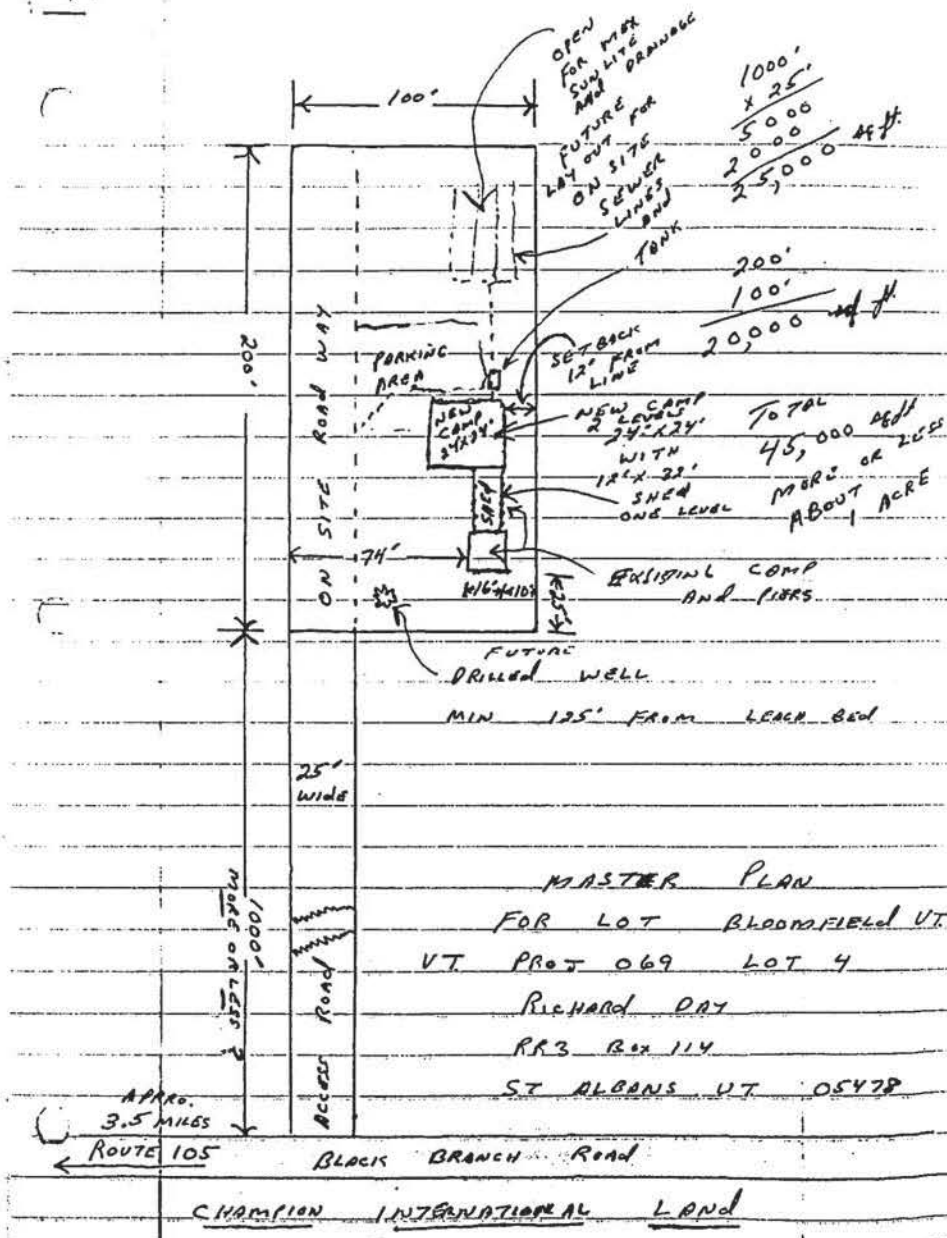 100'
OPEN
FOR MAX
SUNLITE
AND DRAINAGE
FUTURE
LAY OUT FOR
ON SITE
SEWER
LINES
AND
TANK
1000'
x 25'
5000
2000
25,000 sq ft.
200'
100'
20,000 sq ft
TOTAL
45,000 sq ft
MORE OR LESS
ABOUT
1 ACRE
200'
ON SITE ROAD WAY
PARKING
AREA
SETBACK
12' FROM
LINE
NEW
CAMP
24'X24'
NEW CAMP
2 LEVELS
24'X24'
WITH
12'X32'
SHED
ONE LEVEL
SHED
74'
EXSIDING CAMP
AND PIERS
25'
FUTURE
DRILLED WELL
MIN 125' FROM LEACH BED
25'
WIDE
1000'
MORE OR LESS ?
ACCESS ROAD
MASTER PLAN
FOR LOT BLOOMFIELD VT.
VT. PROJ 069 LOT 4
RICHARD DAY
RR3 Box 114
ST ALBANS VT. 05478
APPRO.
3.5 MILES
ROUTE 105
BLACK BRANCH ROAD
CHAMPION INTERNATIONAL LAND